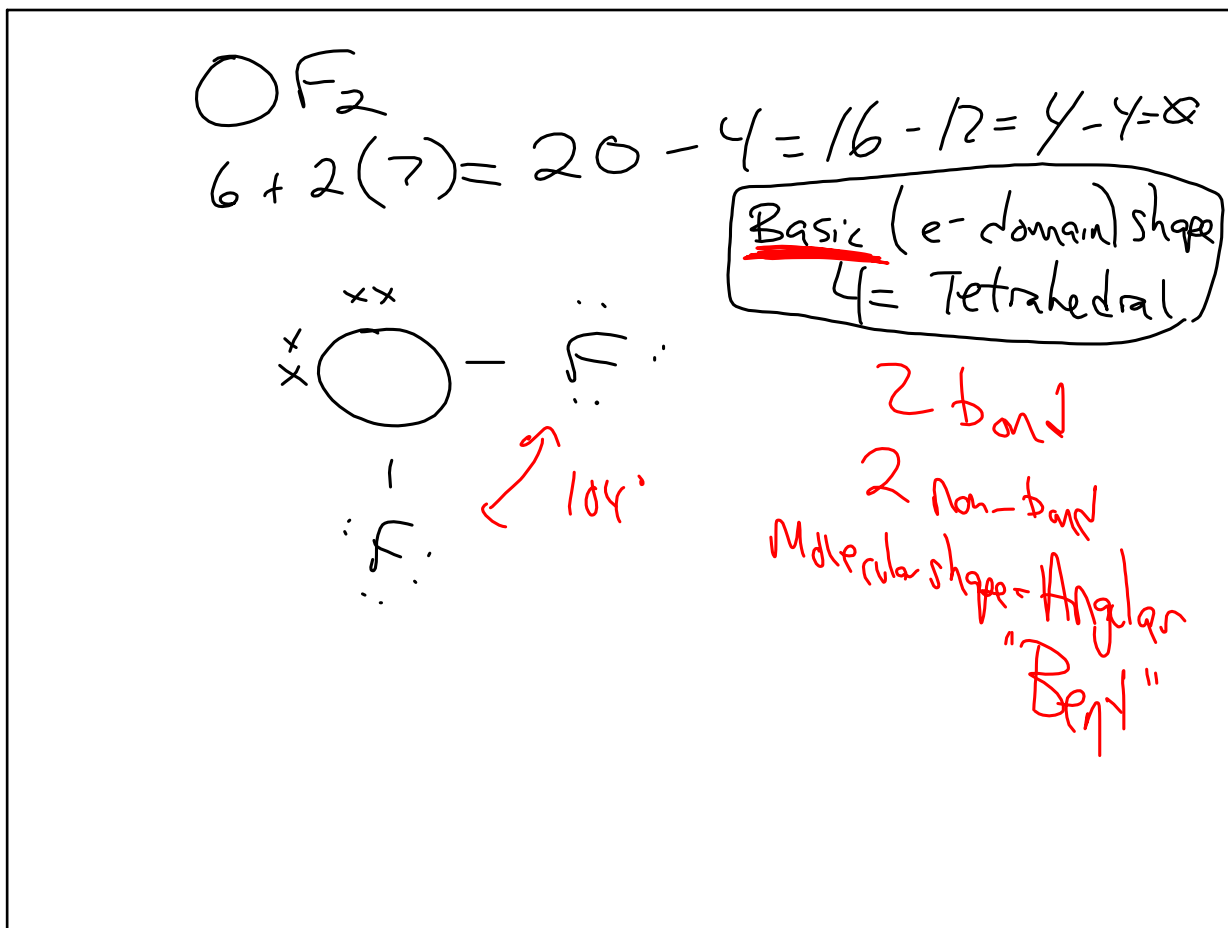 OF2
6 + 2(7) = 20 - 4 = 16 - 12 = 4 - 4 = 0
Basic (e- domain) shape
4 = Tetrahedral
xx
x
x
O - F
|
F
104°
2 bond
2 non-bond
Molecular shape - Angular
"Bent"